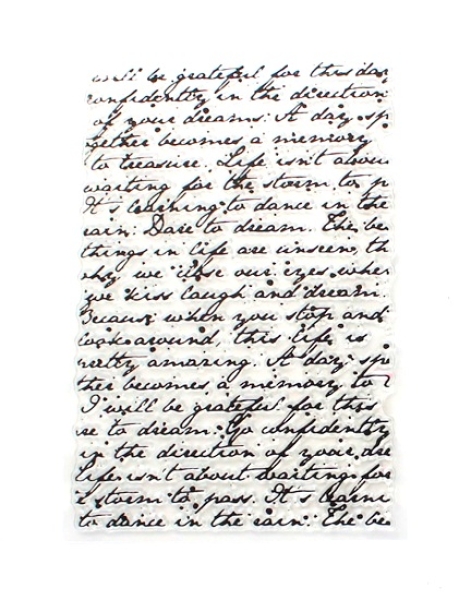 will be grateful for this day
confidently in the direction
of your dreams. A day sp
ogether becomes a memory
to treasure. Life isn't abou
waiting for the storm to p
It's learning to dance in the
rain. Dare to dream. The be
things in life are unseen, th
why we close our eyes when
we kiss laugh and dream.
Because when you stop and
look around, this life is
retty amazing. A day sp
ther becomes a memory to
I will be grateful for this
re to dream. Go confidently
in the direction of your dre
life isn't about waiting for
e storm to pass. It's learni
to dance in the rain. The be